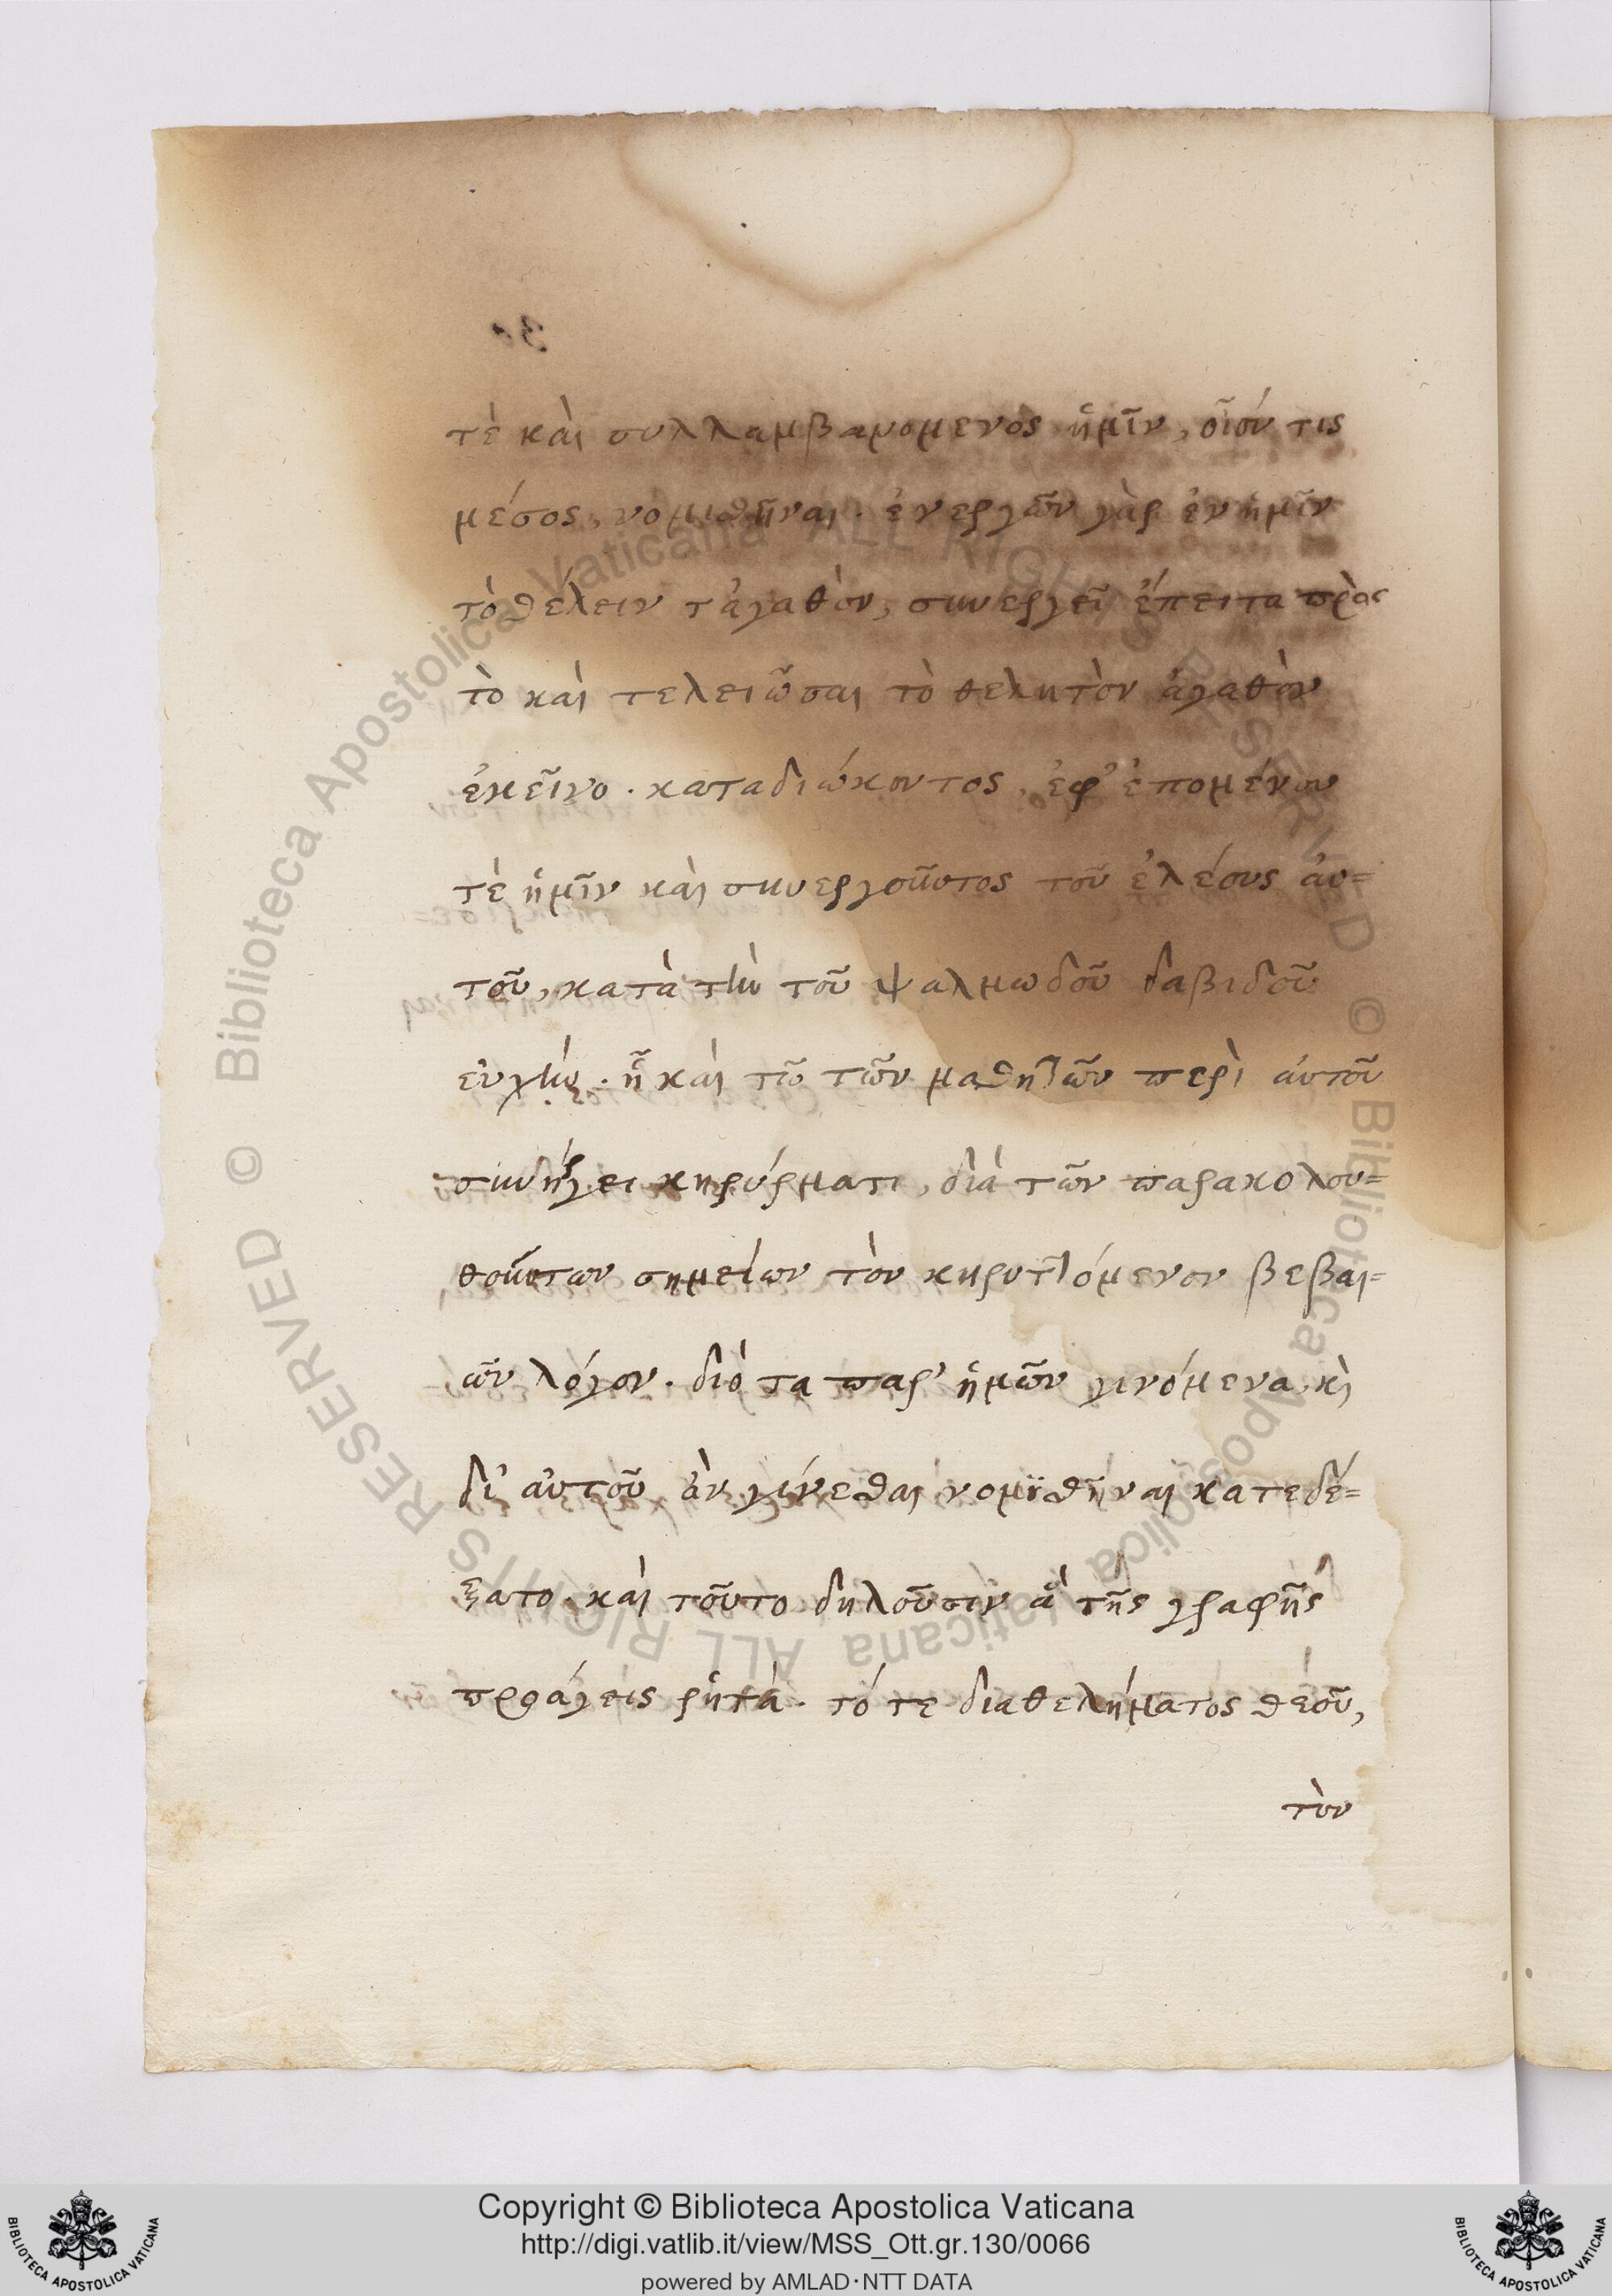 τὲ καὶ συλλαμβανομενὸς ἡμῖν, οἷόν τις
μέσος, νομισθῆναι. ἐνεργῶν γὰρ ἐν ἡμῖν
τὸ θέλειν τἀγαθὸν, συνεργεῖ ἔπειτα πρὸς
τὸ καὶ τελειῶσαι τὸ θελητὸν ἀγαθὸν
ἐκεῖνο. καταδιώκοντος, ἐφ' ἑπομένου
τὲ ἡμῖν καὶ συνεργοῦντος τοῦ ἐλέους αὐ=
τοῦ, κατὰ τὴν τοῦ ψαλμωδοῦ δαβιδοῦ
εὐχήν. ἧ καὶ τῶ τῶν μαθητῶν περὶ αὐτοῦ
συνήργει κηρύγματι, διὰ τῶν παρακολου=
θούντων σημείων τὸν κηρυττόμενον βεβαι=
ῶν λόγον. διὸ τα παρ' ἡμῶν γινόμενα, κὶ
δι' αὐτοῦ ἀν γίνεσθαι νομϊσθῆναι κατεδέ=
ξατο. καὶ τοῦτο δηλοῦσιν ἃ τῆς γραφῆς
προάγεις ῥητά. τό τε διαθελήματος θεοῦ,
τὸν
Copyright © Biblioteca Apostolica Vaticana
http://digi.vatlib.it/view/MSS_Ott.gr.130/0066
powered by AMLAD·NTT DATA
© Biblioteca Apostolica Vaticana ALL RIGHTS RESERVED © Biblioteca Apostolica Vaticana ALL RIGHTS RESERVED
BIBLIOTECA APOSTOLICA VATICANA
BIBLIOTECA APOSTOLICA VATICANA